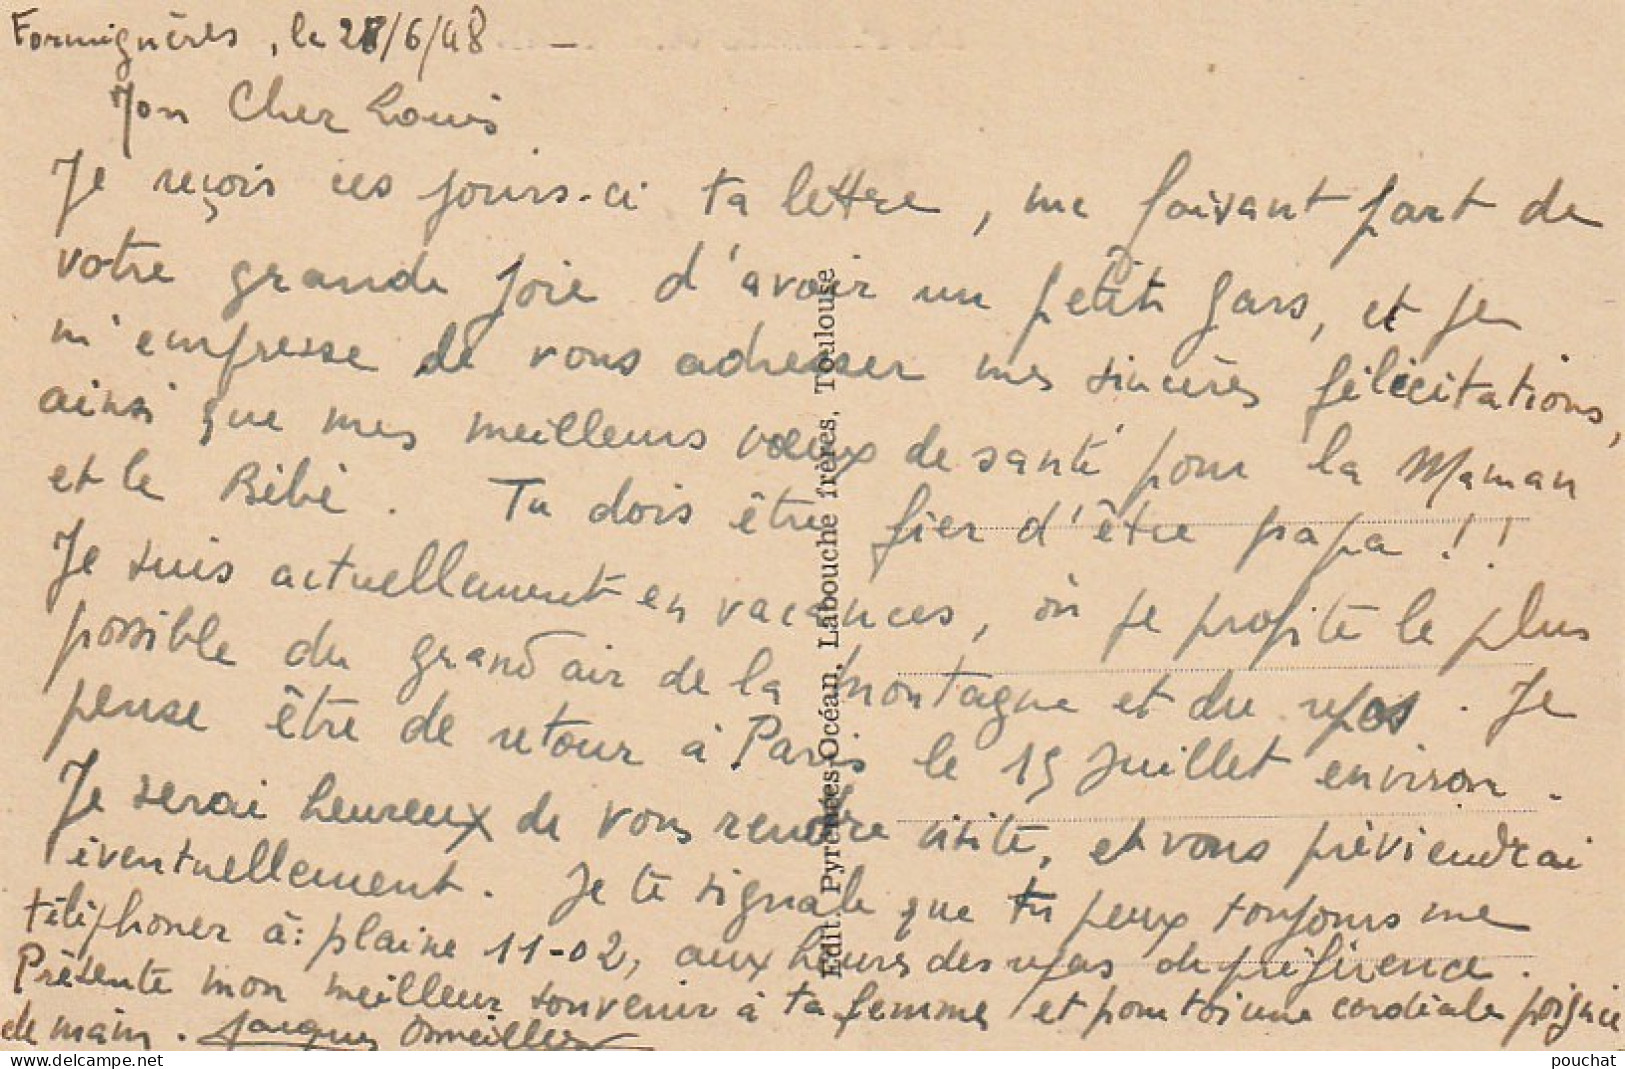 Formiguères, le 28/6/48 —
Mon Cher Louis
Je reçois ces jours-ci ta lettre, me faisant part de
votre grande joie d'avoir un petit gars, et je
m'empresse de vous adresser mes sincères félicitations,
ainsi que mes meilleurs vœux de santé pour la Maman
et le Bébé. Tu dois être fier d'être papa !!
Je suis actuellement en vacances, où je profite le plus
possible du grand air de la montagne et du repos. Je
pense être de retour à Paris le 15 Juillet environ.
Je serai heureux de vous rendre visite, et vous préviendrai
éventuellement. Je te signale que tu peux toujours me
téléphoner à: plaine 11-02, aux heures des repas de préférence.
Présente mon meilleur souvenir à ta femme et pour toi une cordiale poignée
de main. Jacques
Edit. Pyrénées-Océan, Labouche frères, Toulouse
pouchat